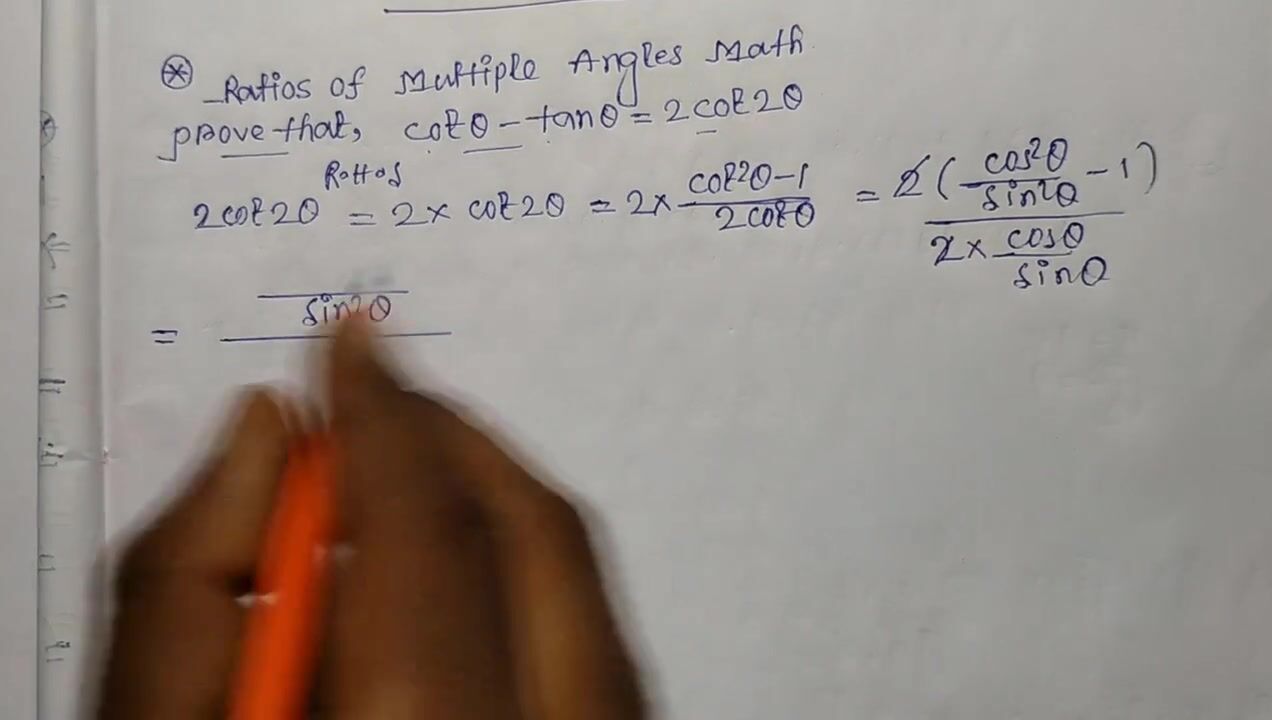 ⊛ Ratios of Multiple Angles Math
prove that, cotθ - tanθ = 2cot2θ
2cot2θ = 2× cot2θ = 2× (cot²θ-1)/(2cotθ) = 2(cos²θ/sin²θ - 1)/(2× cosθ/sinθ)
= sin²θ